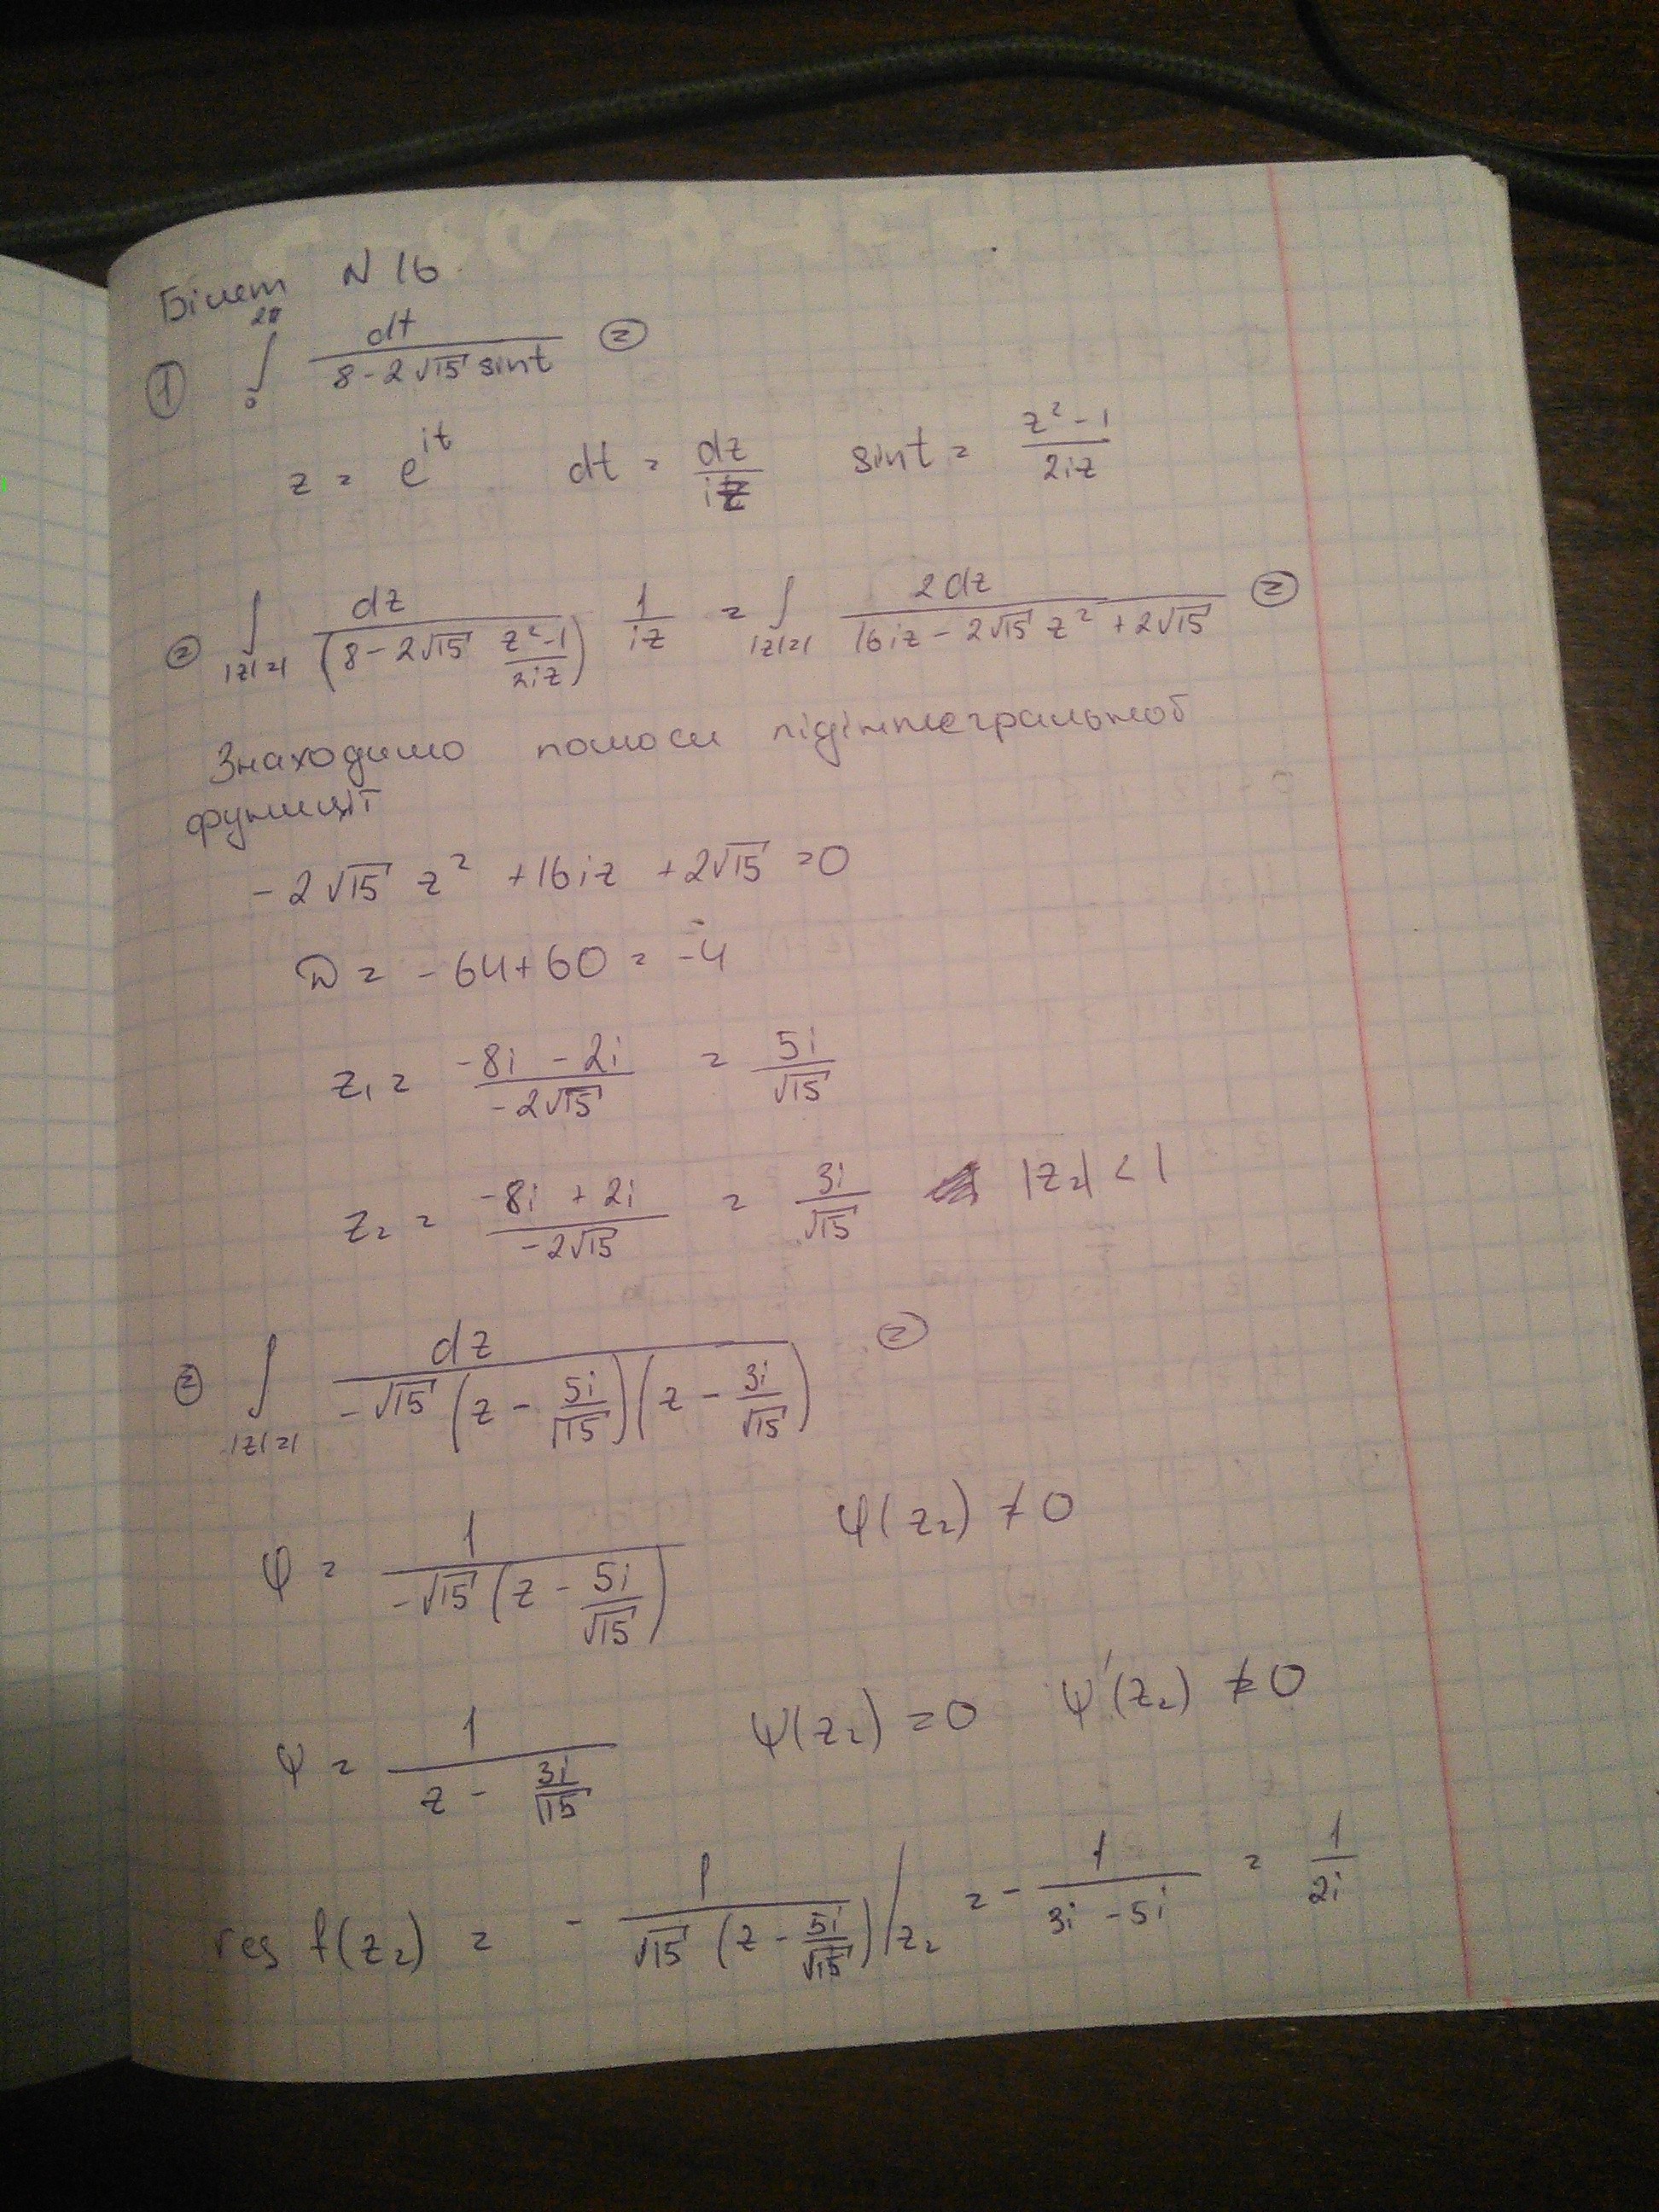 Білет N 16
① ∫₀^{2π} dt / (8 - 2√15 sint) ⊜
z = e^{it}   dt = dz / iz   sint = (z² - 1) / 2iz
⊜ ∫_{|z|=1} dz / (8 - 2√15 (z² - 1)/2iz) 1/iz = ∫_{|z|=1} 2dz / (16iz - 2√15 z² + 2√15) ⊜
Знаходимо полюси підінтегральноб
функції
- 2√15 z² + 16iz + 2√15 = 0
D = - 64 + 60 = -4
z₁ = (-8i - 2i) / (-2√15) = 5i / √15
z₂ = (-8i + 2i) / (-2√15) = 3i / √15   |z₂| < 1
⊜ ∫_{|z|=1} dz / (-√15 (z - 5i/√15)(z - 3i/√15)) ⊜
φ = 1 / (-√15 (z - 5i/√15))   φ(z₂) ≠ 0
ψ = 1 / (z - 3i/√15)   ψ(z₂) = 0   ψ'(z₂) ≠ 0
res f(z₂) = - 1 / (√15 (z - 5i/√15)) /z₂ = - 1 / (3i - 5i) = 1 / 2i